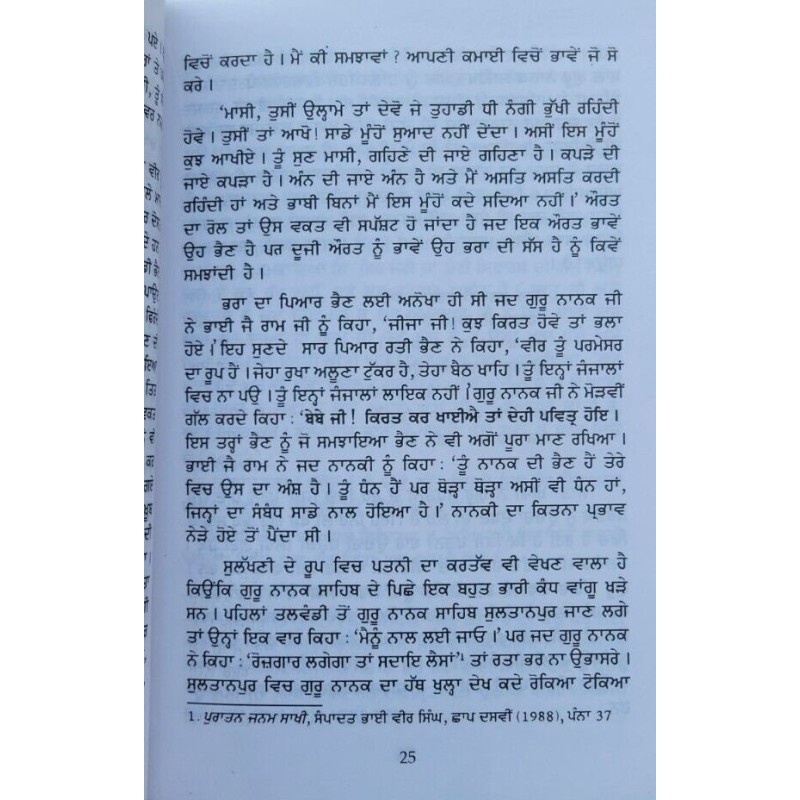 ਵਿਚੋਂ ਕਰਦਾ ਹੈ। ਮੈਂ ਕੀ ਸਮਝਾਵਾਂ ? ਆਪਣੀ ਕਮਾਈ ਵਿਚੋਂ ਭਾਵੇਂ ਜੋ ਸੋ
ਕਰੇ।
'ਮਾਸੀ, ਤੁਸੀਂ ਉਲ੍ਹਾਮੇ ਤਾਂ ਦੇਵੋ ਜੇ ਤੁਹਾਡੀ ਧੀ ਨੰਗੀ ਭੁੱਖੀ ਰਹਿੰਦੀ
ਹੋਵੇ। ਤੁਸੀਂ ਤਾਂ ਆਖੋ! ਸਾਡੇ ਮੂੰਹੋਂ ਸੁਆਦ ਨਹੀਂ ਦੇਂਦਾ। ਅਸੀਂ ਇਸ ਮੂੰਹੋਂ
ਕੁਝ ਆਖੀਏ। ਤੂੰ ਸੁਣ ਮਾਸੀ, ਗਹਿਣੇ ਦੀ ਜਾਏ ਗਹਿਣਾ ਹੈ। ਕਪੜੇ ਦੀ
ਜਾਏ ਕਪੜਾ ਹੈ। ਅੰਨ ਦੀ ਜਾਏ ਅੰਨ ਹੈ ਅਤੇ ਮੈਂ ਅਸਤਿ ਅਸਤਿ ਕਰਦੀ
ਰਹਿੰਦੀ ਹਾਂ ਅਤੇ ਭਾਬੀ ਬਿਨਾਂ ਮੈਂ ਇਸ ਮੂੰਹੋਂ ਕਦੇ ਸਦਿਆ ਨਹੀਂ।' ਔਰਤ
ਦਾ ਰੋਲ ਤਾਂ ਉਸ ਵਕਤ ਵੀ ਸਪੱਸ਼ਟ ਹੋ ਜਾਂਦਾ ਹੈ ਜਦ ਇਕ ਔਰਤ ਭਾਵੇਂ
ਉਹ ਭੈਣ ਹੈ ਪਰ ਦੂਜੀ ਔਰਤ ਨੂੰ ਭਾਵੇਂ ਉਹ ਭਰਾ ਦੀ ਸੱਸ ਹੈ ਨੂੰ ਕਿਵੇਂ
ਸਮਝਾਂਦੀ ਹੈ।
ਭਰਾ ਦਾ ਪਿਆਰ ਭੈਣ ਲਈ ਅਨੋਖਾ ਹੀ ਸੀ ਜਦ ਗੁਰੂ ਨਾਨਕ ਜੀ
ਨੇ ਭਾਈ ਜੈ ਰਾਮ ਜੀ ਨੂੰ ਕਿਹਾ, 'ਜੀਜਾ ਜੀ! ਕੁਝ ਕਿਰਤ ਹੋਵੇ ਤਾਂ ਭਲਾ
ਹੋਏ।' ਇਹ ਸੁਣਦੇ ਸਾਰ ਪਿਆਰ ਰਤੀ ਭੈਣ ਨੇ ਕਿਹਾ, 'ਵੀਰ ਤੂੰ ਪਰਮੇਸਰ
ਦਾ ਰੂਪ ਹੈਂ। ਜੇਹਾ ਰੁਖਾ ਅਲੂਣਾ ਟੁੱਕਰ ਹੈ, ਤੇਹਾ ਬੈਠ ਖਾਹਿ। ਤੂੰ ਇਨ੍ਹਾਂ ਜੰਜਾਲਾਂ
ਵਿਚ ਨਾ ਪਉ। ਤੂੰ ਇਨ੍ਹਾਂ ਜੰਜਾਲਾਂ ਲਾਇਕ ਨਹੀਂ।' ਗੁਰੂ ਨਾਨਕ ਜੀ ਨੇ ਮੋੜਵੀਂ
ਗੱਲ ਕਰਦੇ ਕਿਹਾ : 'ਬੇਬੇ ਜੀ! ਕਿਰਤ ਕਰ ਖਾਈਐ ਤਾਂ ਦੇਹੀ ਪਵਿਤ੍ਰ ਹੋਇ।
ਇਸ ਤਰ੍ਹਾਂ ਭੈਣ ਨੂੰ ਜੋ ਸਮਝਾਇਆ ਭੈਣ ਨੇ ਵੀ ਅਗੋਂ ਪੂਰਾ ਮਾਣ ਰਖਿਆ।
ਭਾਈ ਜੈ ਰਾਮ ਨੇ ਜਦ ਨਾਨਕੀ ਨੂੰ ਕਿਹਾ : 'ਤੂੰ ਨਾਨਕ ਦੀ ਭੈਣ ਹੈਂ ਤੇਰੇ
ਵਿਚ ਉਸ ਦਾ ਅੰਸ਼ ਹੈ। ਤੂੰ ਧੰਨ ਹੈਂ ਪਰ ਥੋੜ੍ਹਾ ਥੋੜ੍ਹਾ ਅਸੀਂ ਵੀ ਧੰਨ ਹਾਂ,
ਜਿਨ੍ਹਾਂ ਦਾ ਸੰਬੰਧ ਸਾਡੇ ਨਾਲ ਹੋਇਆ ਹੈ।' ਨਾਨਕੀ ਦਾ ਕਿਤਨਾ ਪ੍ਰਭਾਵ
ਨੇੜੇ ਹੋਏ ਤੋਂ ਪੈਂਦਾ ਸੀ।
ਸੁਲੱਖਣੀ ਦੇ ਰੂਪ ਵਿਚ ਪਤਨੀ ਦਾ ਕਰਤੱਵ ਵੀ ਵੇਖਣ ਵਾਲਾ ਹੈ
ਕਿਉਂਕਿ ਗੁਰੂ ਨਾਨਕ ਸਾਹਿਬ ਦੇ ਪਿਛੇ ਇਕ ਬਹੁਤ ਭਾਰੀ ਕੰਧ ਵਾਂਗੂ ਖੜੇ
ਸਨ। ਪਹਿਲਾਂ ਤਲਵੰਡੀ ਤੋਂ ਗੁਰੂ ਨਾਨਕ ਸਾਹਿਬ ਸੁਲਤਾਨਪੁਰ ਜਾਣ ਲਗੇ
ਤਾਂ ਉਨ੍ਹਾਂ ਇਕ ਵਾਰ ਕਿਹਾ : 'ਮੈਨੂੰ ਨਾਲ ਲਈ ਜਾਓ।' ਪਰ ਜਦ ਗੁਰੂ ਨਾਨਕ
ਨੇ ਕਿਹਾ : 'ਰੋਜ਼ਗਾਰ ਲਗੇਗਾ ਤਾਂ ਸਦਾਇ ਲੈਸਾਂ'¹ ਤਾਂ ਰਤਾ ਭਰ ਨਾ ਉਭਾਸਰੇ।
ਸੁਲਤਾਨਪੁਰ ਵਿਚ ਗੁਰੂ ਨਾਨਕ ਦਾ ਹੱਥ ਖੁਲ੍ਹਾ ਦੇਖ ਕਦੇ ਰੋਕਿਆ ਟੋਕਿਆ
1. ਪੁਰਾਤਨ ਜਨਮ ਸਾਖੀ, ਸੰਪਾਦਤ ਭਾਈ ਵੀਰ ਸਿੰਘ, ਛਾਪ ਦਸਵੀਂ (1988), ਪੰਨਾ 37
25